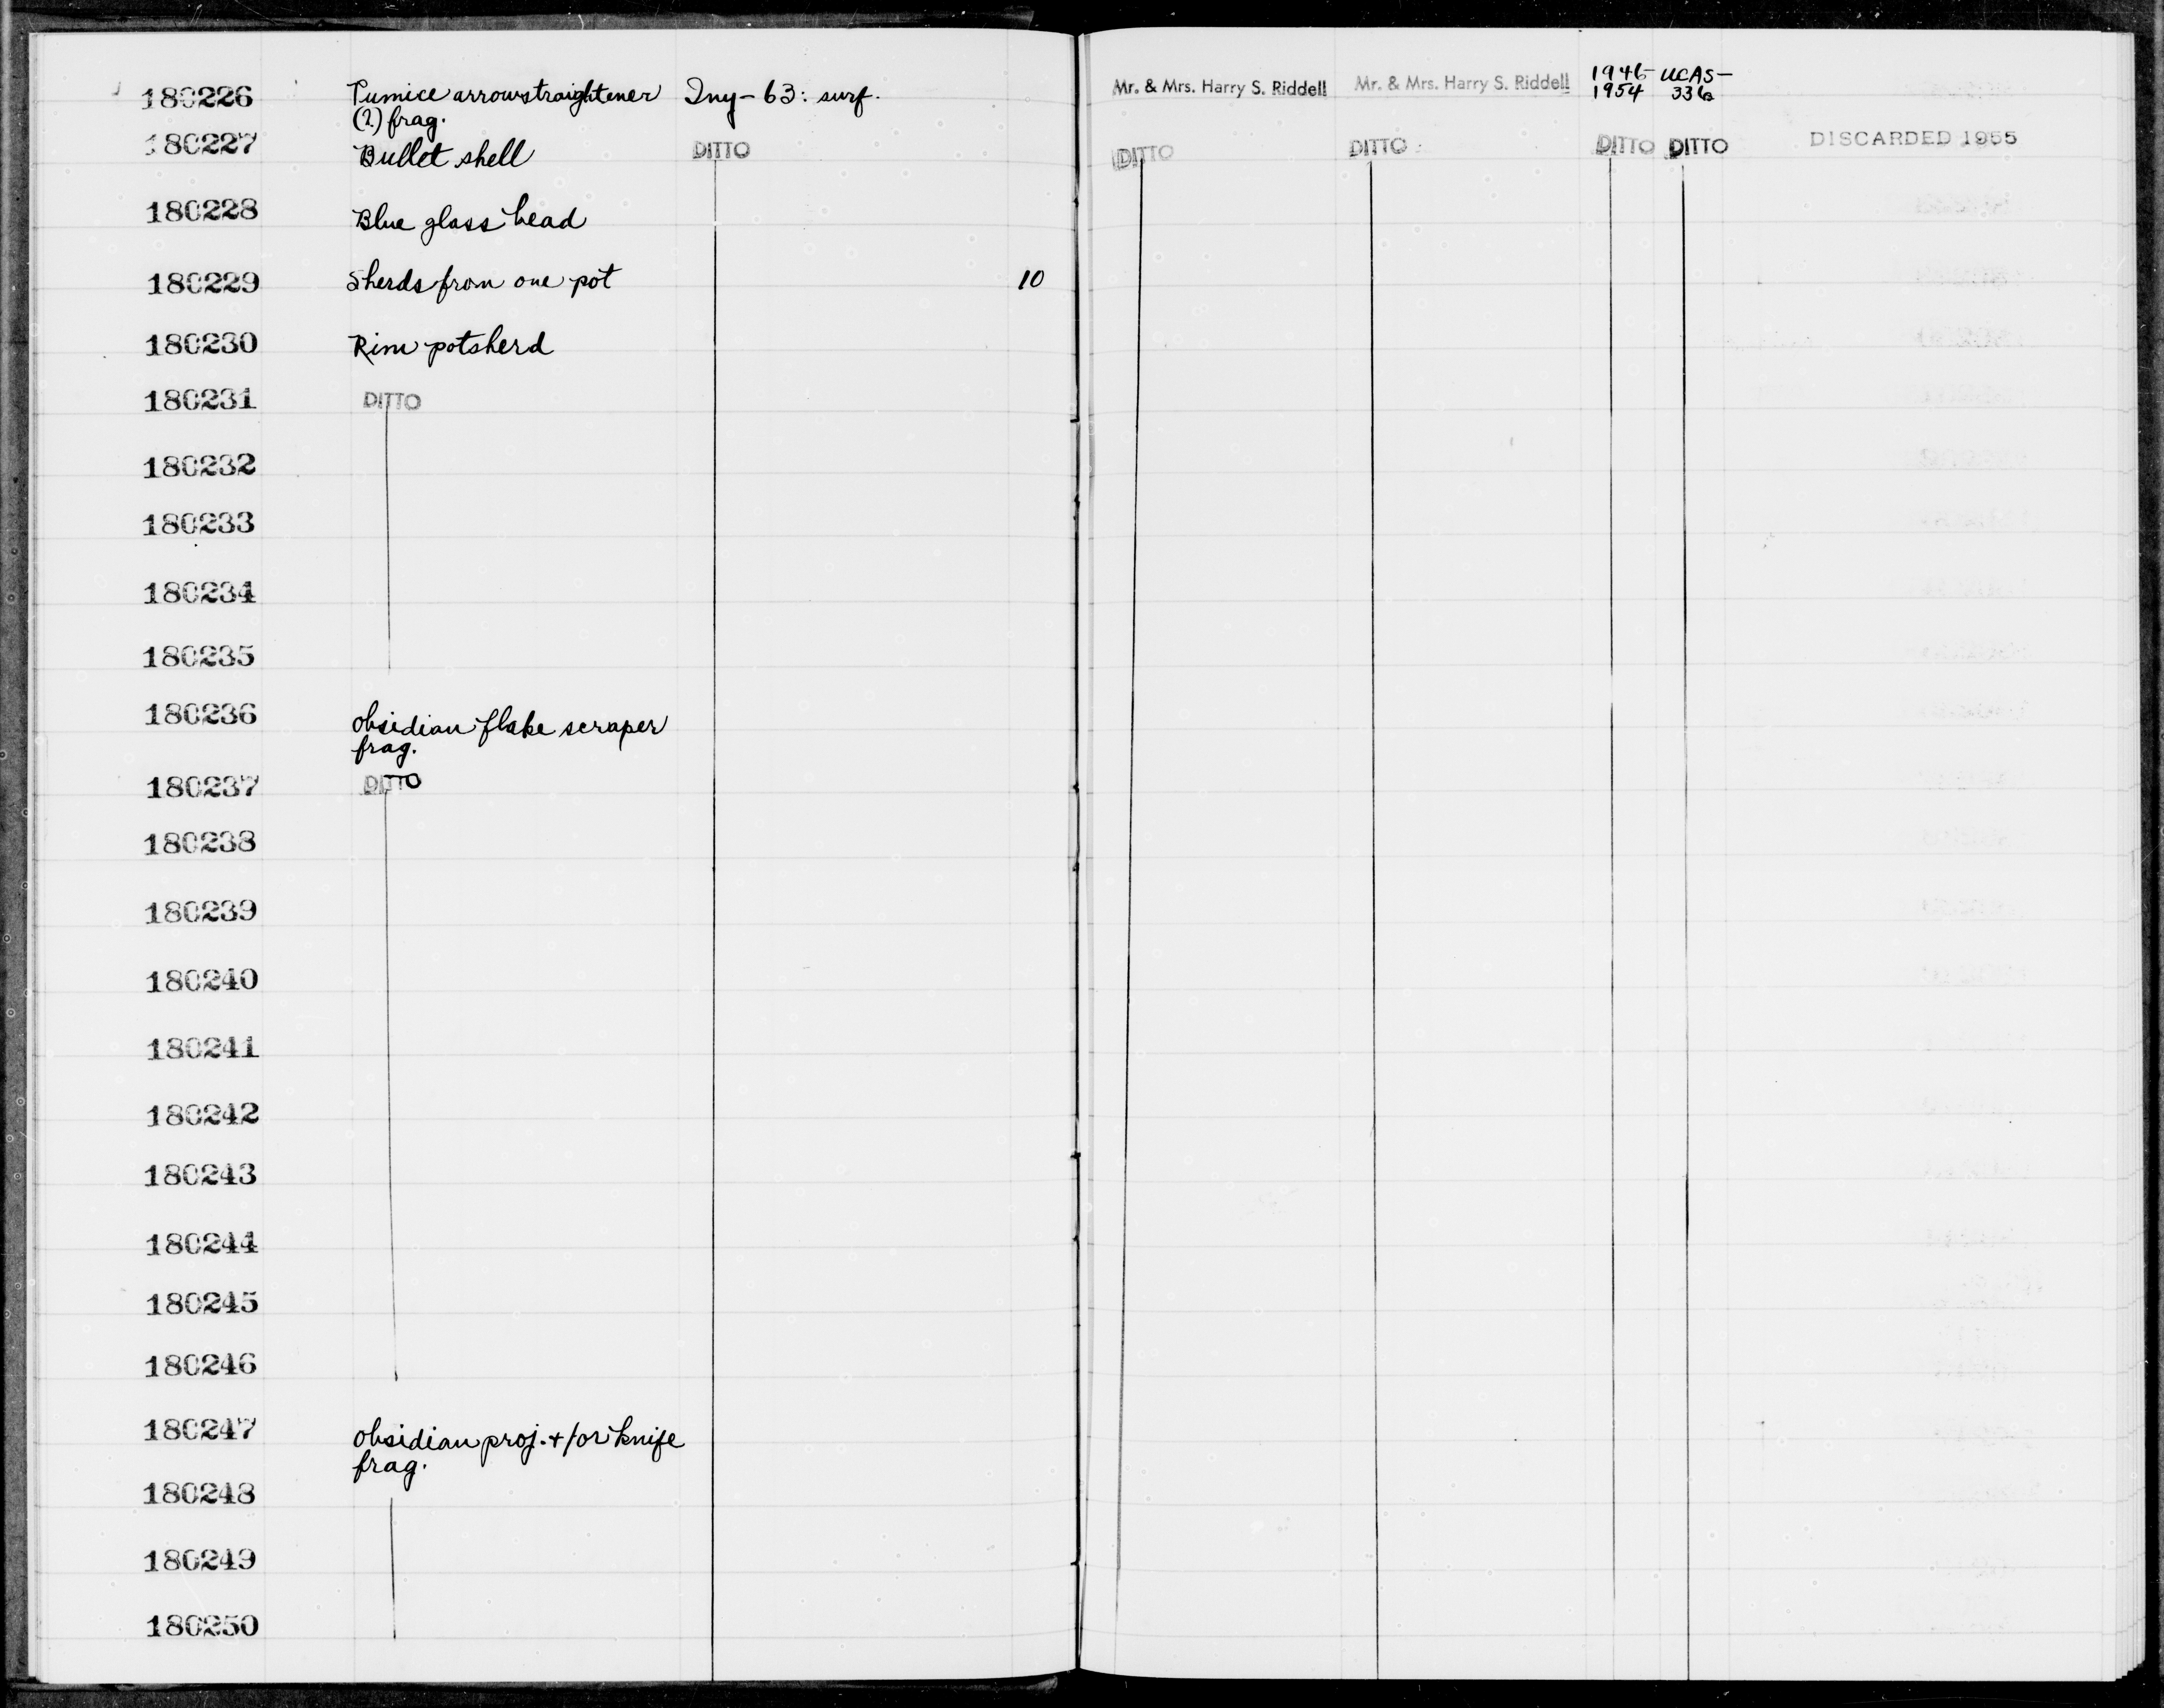 180226 Pumice arrowstraightener Iny-63: surf. Mr. & Mrs. Harry S. Riddell Mr. & Mrs. Harry S. Riddell 1946- UCAS-
(?) frag. 1954
180227 Bullet shell DITTO DITTO DITTO DITTO DITTO DISCARDED 1955
180228 Blue glass bead
180229 Sherds from one pot 10
180230 Rim potsherd
180231 DITTO
180232
180233
180234
180235
180236 Obsidian flake scraper
frag.
180237 DITTO
180238
180239
180240
180241
180242
180243
180244
180245
180246
180247 Obsidian proj. +/or knife
frag.
180248
180249
180250